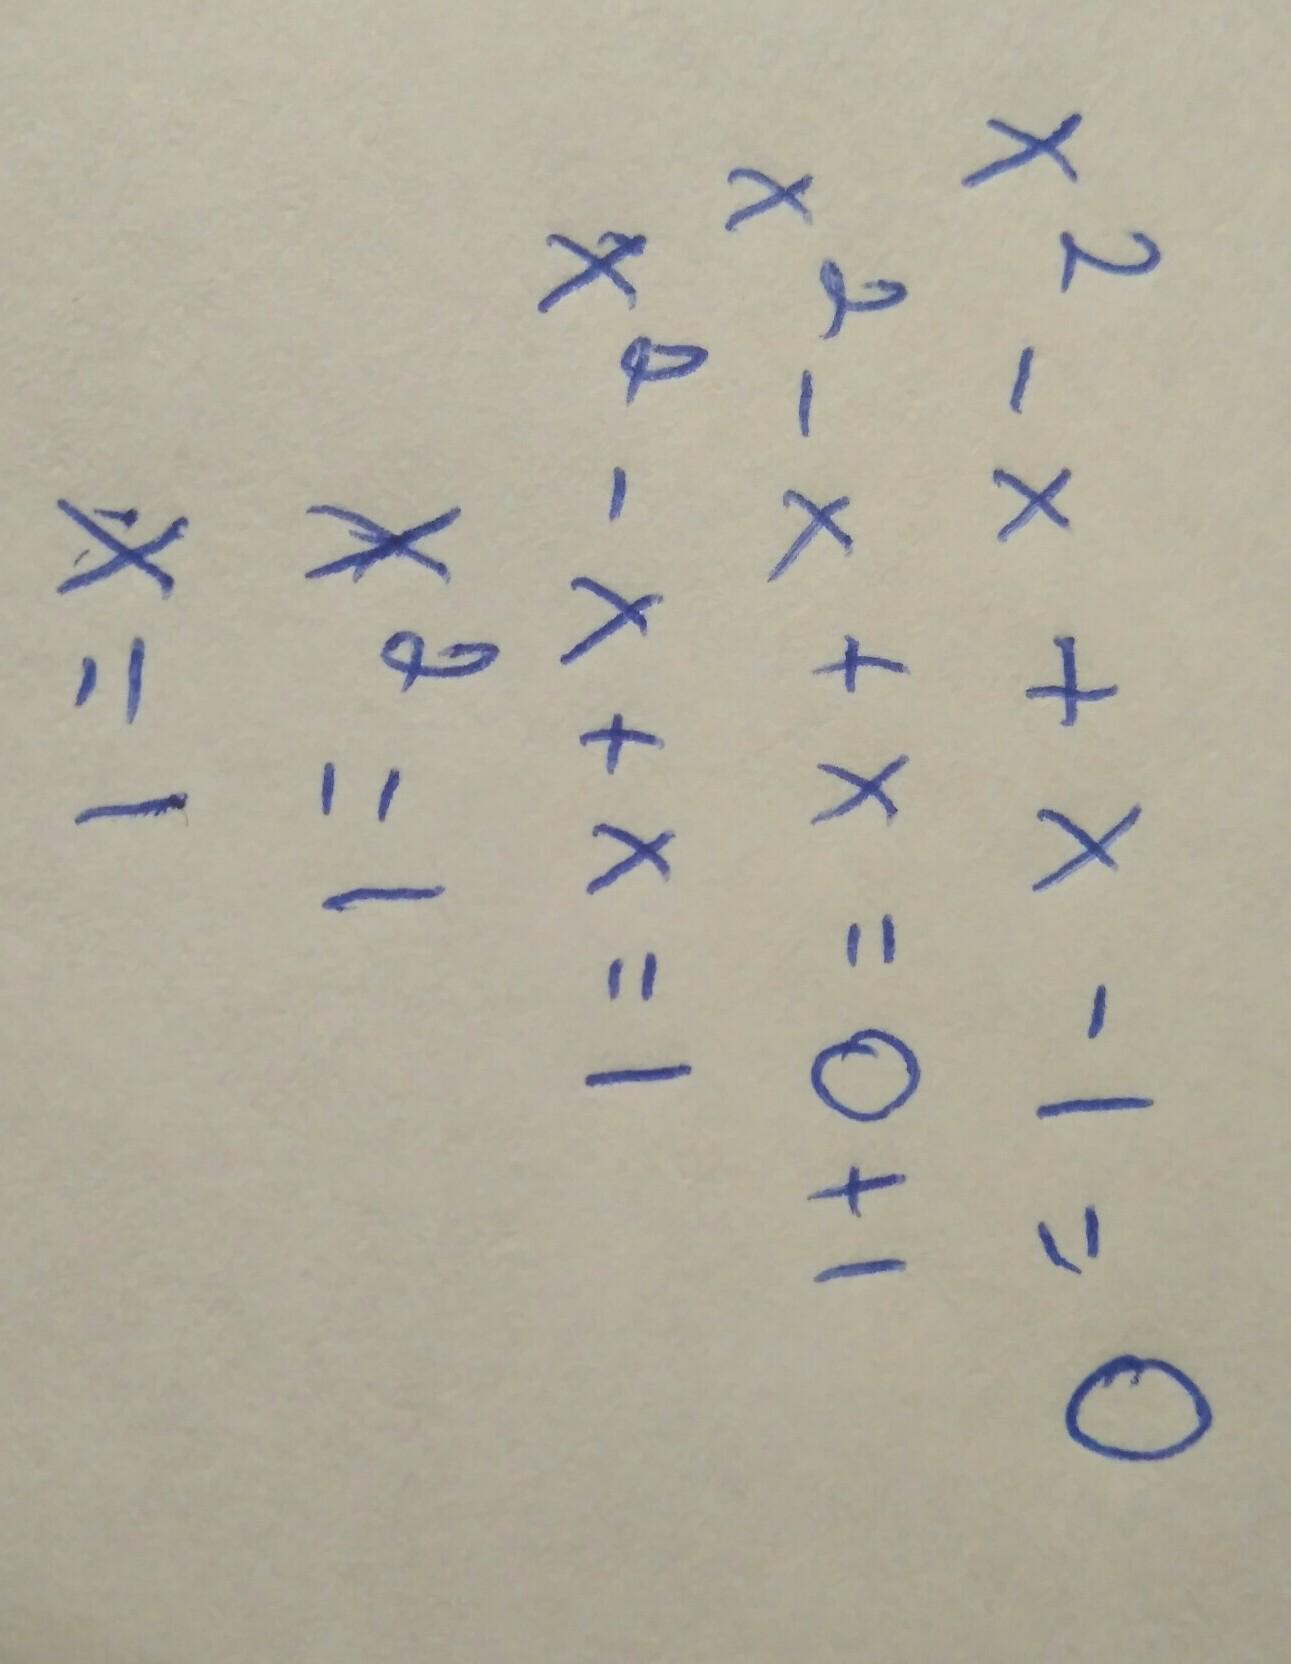 x² - x + x - 1 = 0
x² - x + x = 0 + 1
x² - x + x = 1
x² = 1
x = 1